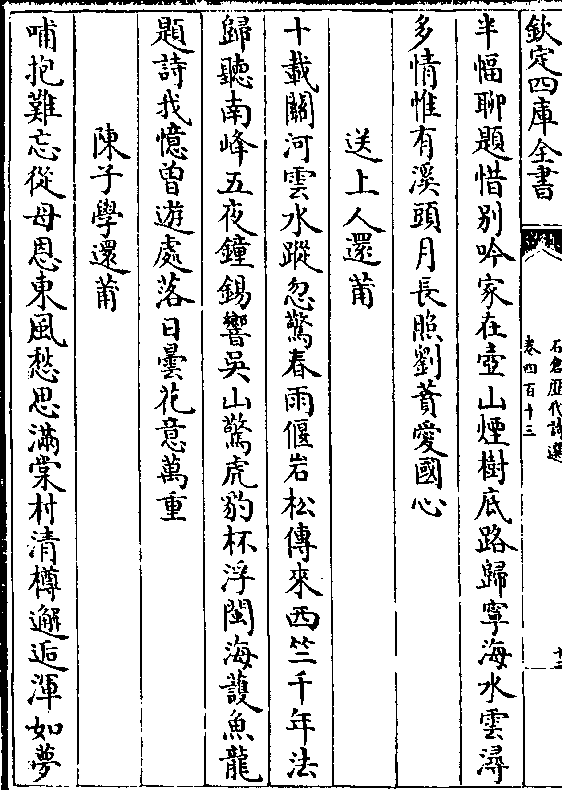 欽定四庫全書
石倉歷代詩選
卷四百十三
十二
半幅聊題惜别吟家在壺山煙樹底路歸寧海水雲潯
多情惟有溪頭月長照劉蕡愛國心
送上人還莆
十載關河雲水蹤忽驚春雨偃岩松傳來西竺千年法
歸聽南峰五夜鐘錫響吳山驚虎豹杯浮閩海護魚龍
題詩我憶曾遊處落日曇花意萬重
陳子學還莆
哺抱難忘從母恩東風愁思滿棠村清樽邂逅渾如夢